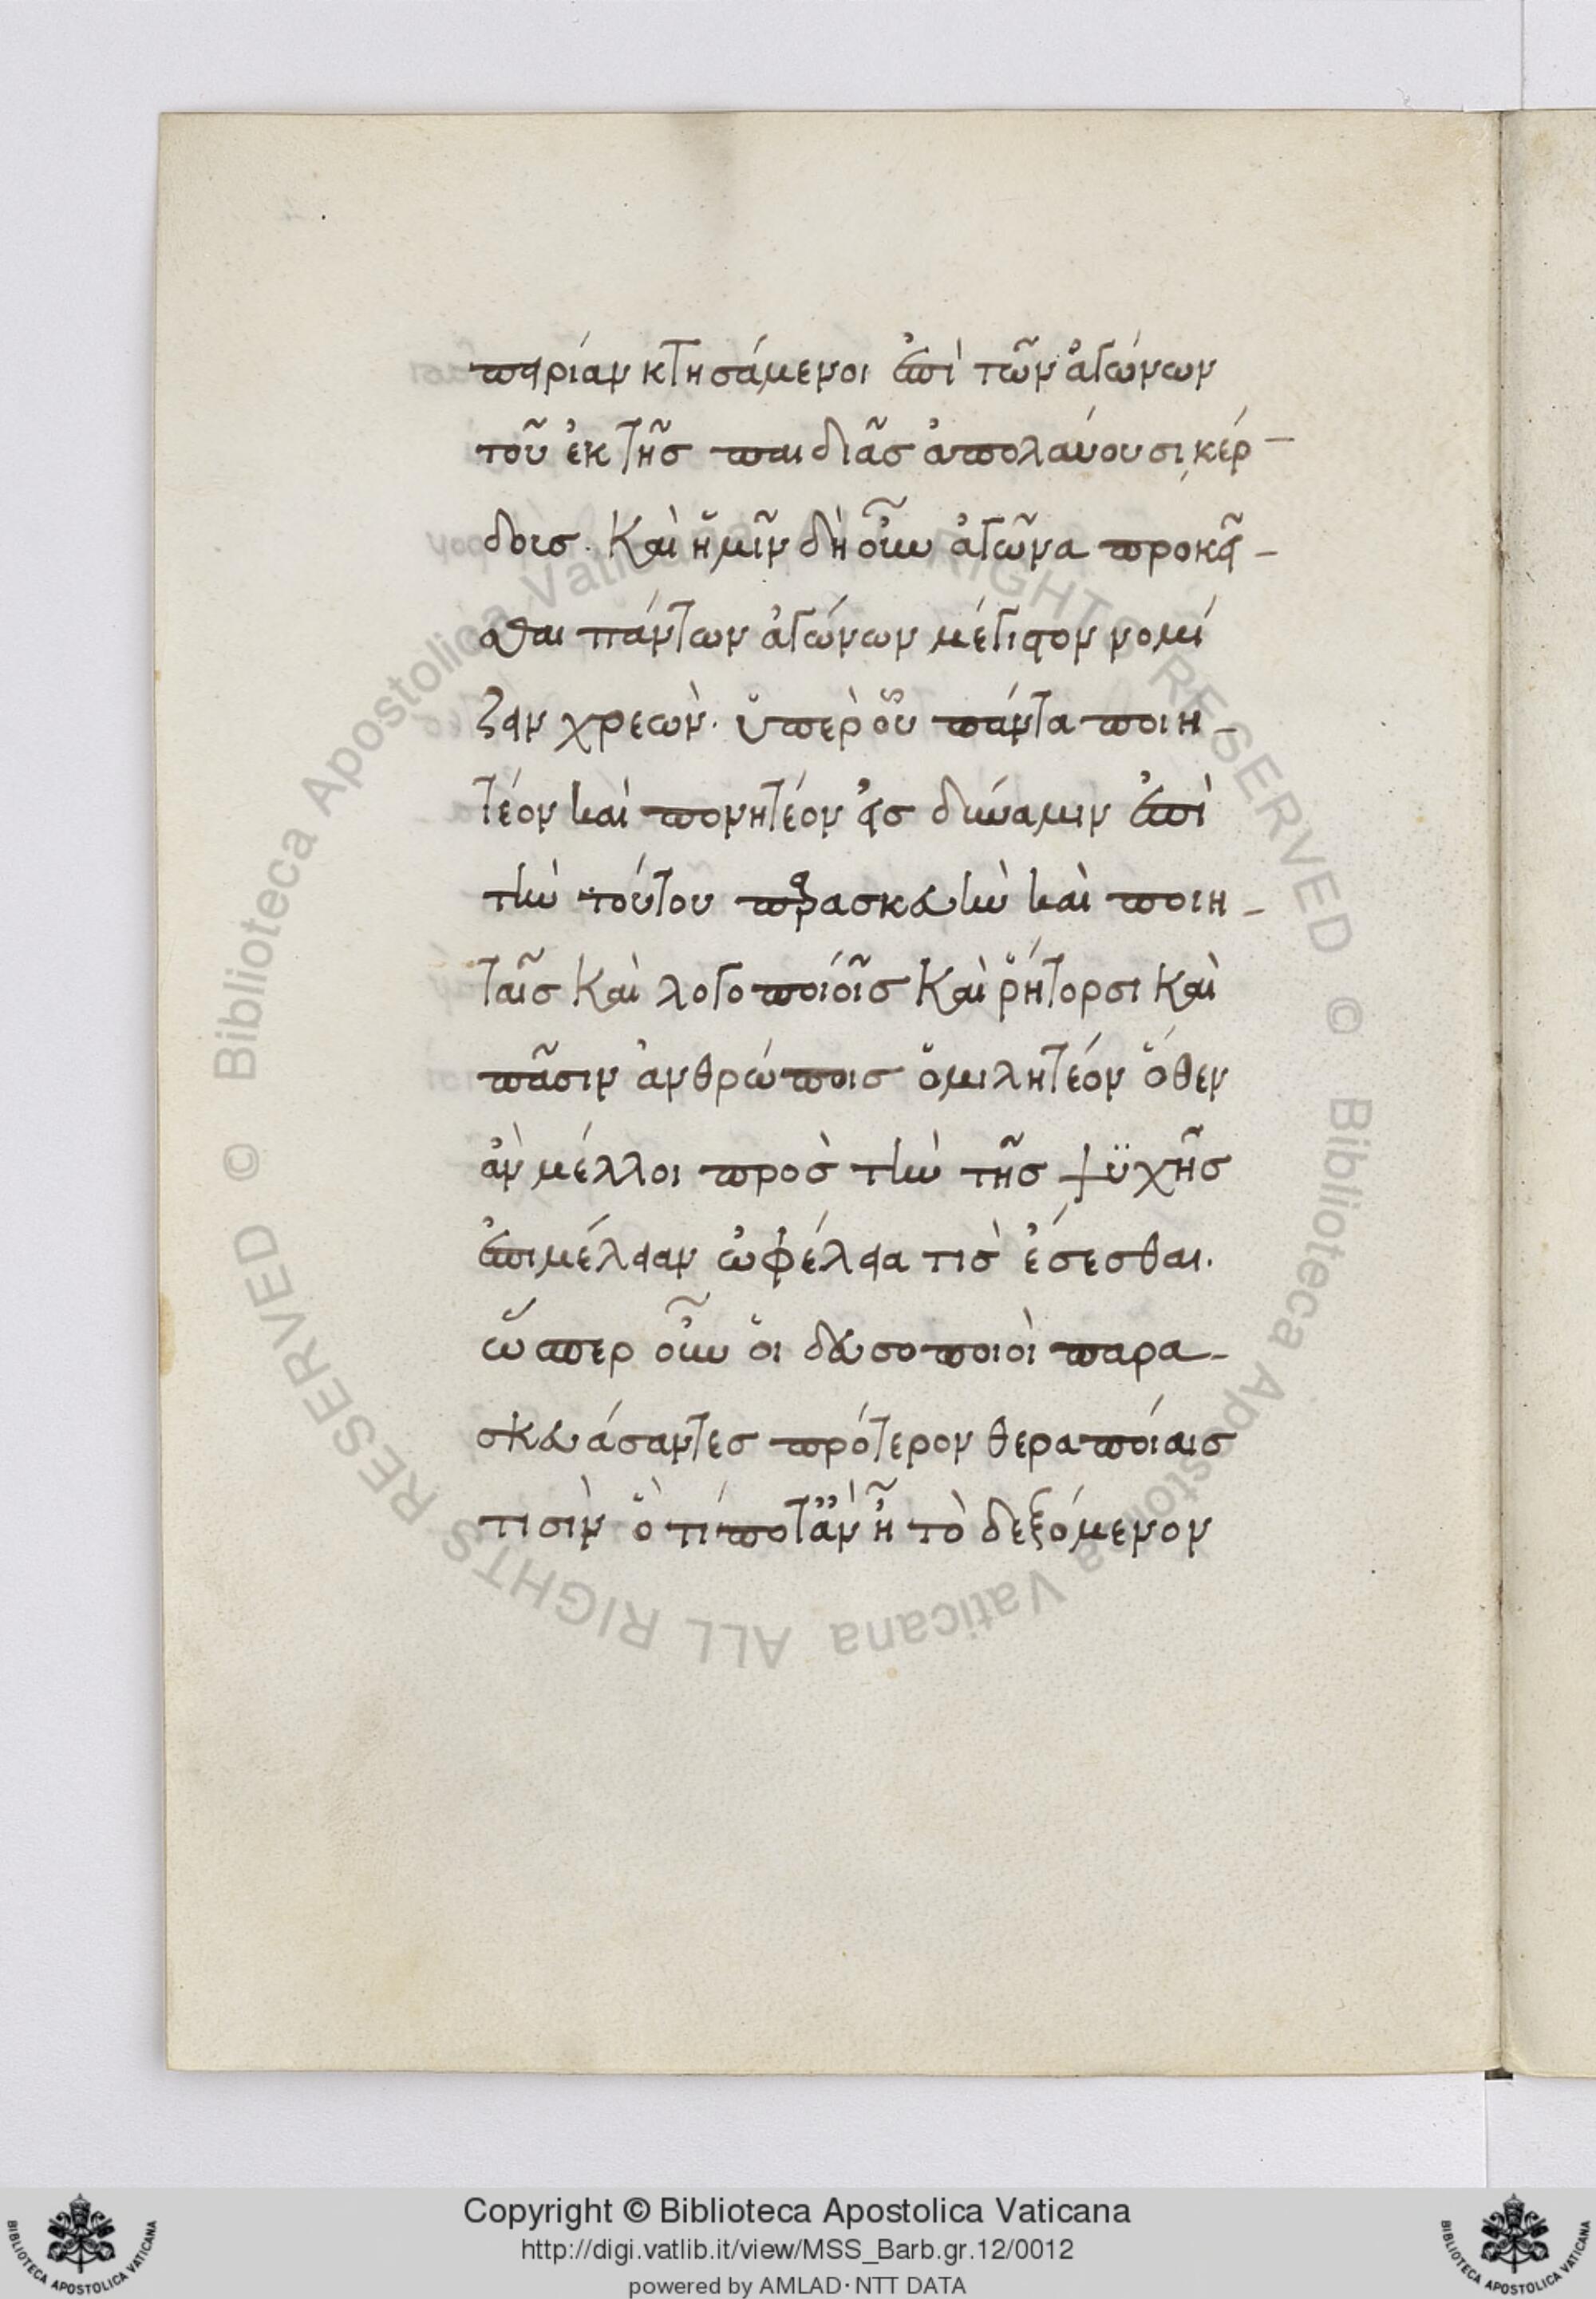 πειρίαν κτησάμενοι ἐπὶ τῶν ἀγώνων
τοῦ ἐκ τῆς παιδιᾶς ἀπολαύουσι κέρ-
δοις. Καὶ ἡμῖν δὴ οὖν ἀγῶνα προκεῖ-
σθαι πάντων ἀγώνων μέγιστον νομί
ζειν χρεὼν. ὑπὲρ οὗ πάντα ποιη-
τέον καὶ πονητέον εἰς δύναμιν ἐπὶ
τὴν τούτου πρασκευὴν καὶ ποιη-
ταῖς καὶ λογοποιόῖς καὶ ῥήτορσι καὶ
πᾶσιν ἀνθρώποις ὁμιλητέον ὅθεν
ἂν μέλλοι πρὸς τὴν τῆς ψϋχῆς
ἐπιμέλειαν ὠφέλεια τὶς ἔσεσθαι.
ὥσπερ οὖν ὁι δευσοποιοὶ παρα-
σκευάσαντες πρότερον θεραποίαις
τισὶν ὅ τί ποτ ἂν ᾖ τὸ δεξόμενον
Copyright © Biblioteca Apostolica Vaticana
http://digi.vatlib.it/view/MSS_Barb.gr.12/0012
powered by AMLAD·NTT DATA
BIBLIOTECA APOSTOLICA VATICANA
BIBLIOTECA APOSTOLICA VATICANA
© Biblioteca Apostolica Vaticana ALL RIGHTS RESERVED © Biblioteca Apostolica Vaticana ALL RIGHTS RESERVED